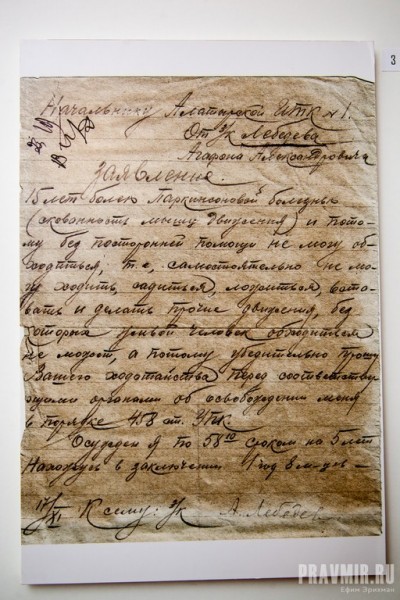 3
Начальнику Алатырской ИТК №1.
От з/к Лебедева
Агафона Александровича
Заявление.
15 лет болею Паркинсоновой болезнью
(скованность мышц движения) и пото-
му без посторонней помощи не могу об-
ходиться, т.е. самостоятельно не мо-
гу ходить, садиться, ложиться, вста-
вать и делать прочие движения, без
которых живой человек обходиться
не может, а потому убедительно прошу
Вашего ходатайства перед соответству-
ющими органами об освобождении меня
в порядке 458 ст. УПК.
Осужден я по 58¹⁰ сроком на 5 лет
Нахожусь в заключении 1 год 8 м-цев –
17/XI К сему: з/к А. Лебедев
PRAVMIR.RU
Ефим Эрихман